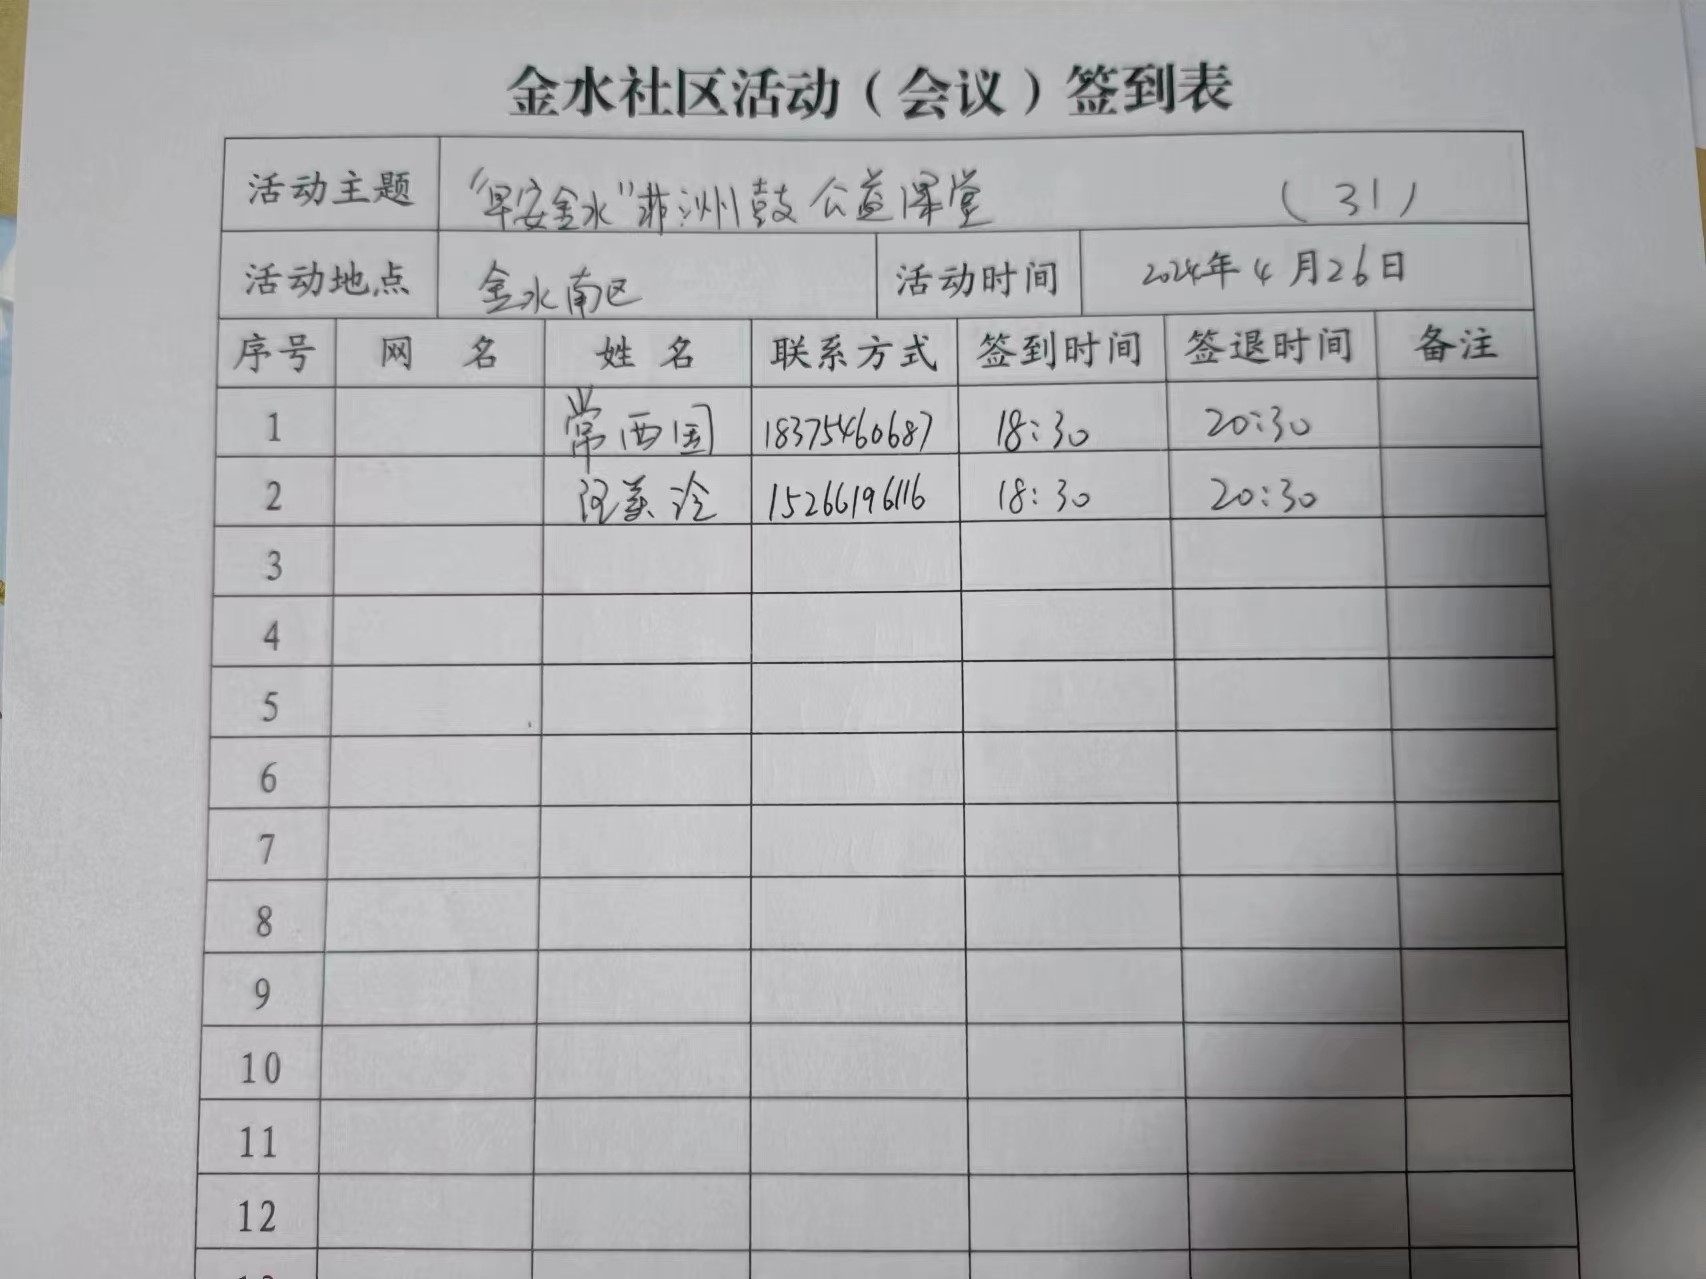 金水社区活动（会议）签到表
活动主题 “早安金水”非洲鼓公益课堂 （31）
活动地点 金水南区 活动时间 2024年4月26日
序号 网 名 姓 名 联系方式 签到时间 签退时间 备注
1 常西国 18375460687 18:30 20:30
2 15266196116 18:30 20:30
3
4
5
6
7
8
9
10
11
12